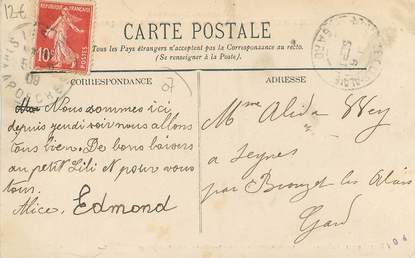 12€
RÉPUBLIQUE FRANÇAISE
10c
POSTES
CARTE POSTALE
Tous les Pays étrangers n'acceptent pas la Correspondance au recto.
(Se renseigner à la Poste).
CORRESPONDANCE
ADRESSE
Nous sommes ici
depuis jeudi soir nous allons
tous bien. De bons baisers
au petit Lili et pour vous
tous.
Alice. Edmond
Mme Alida Wey
a Seynes
par Brouzet les Alais
Gard